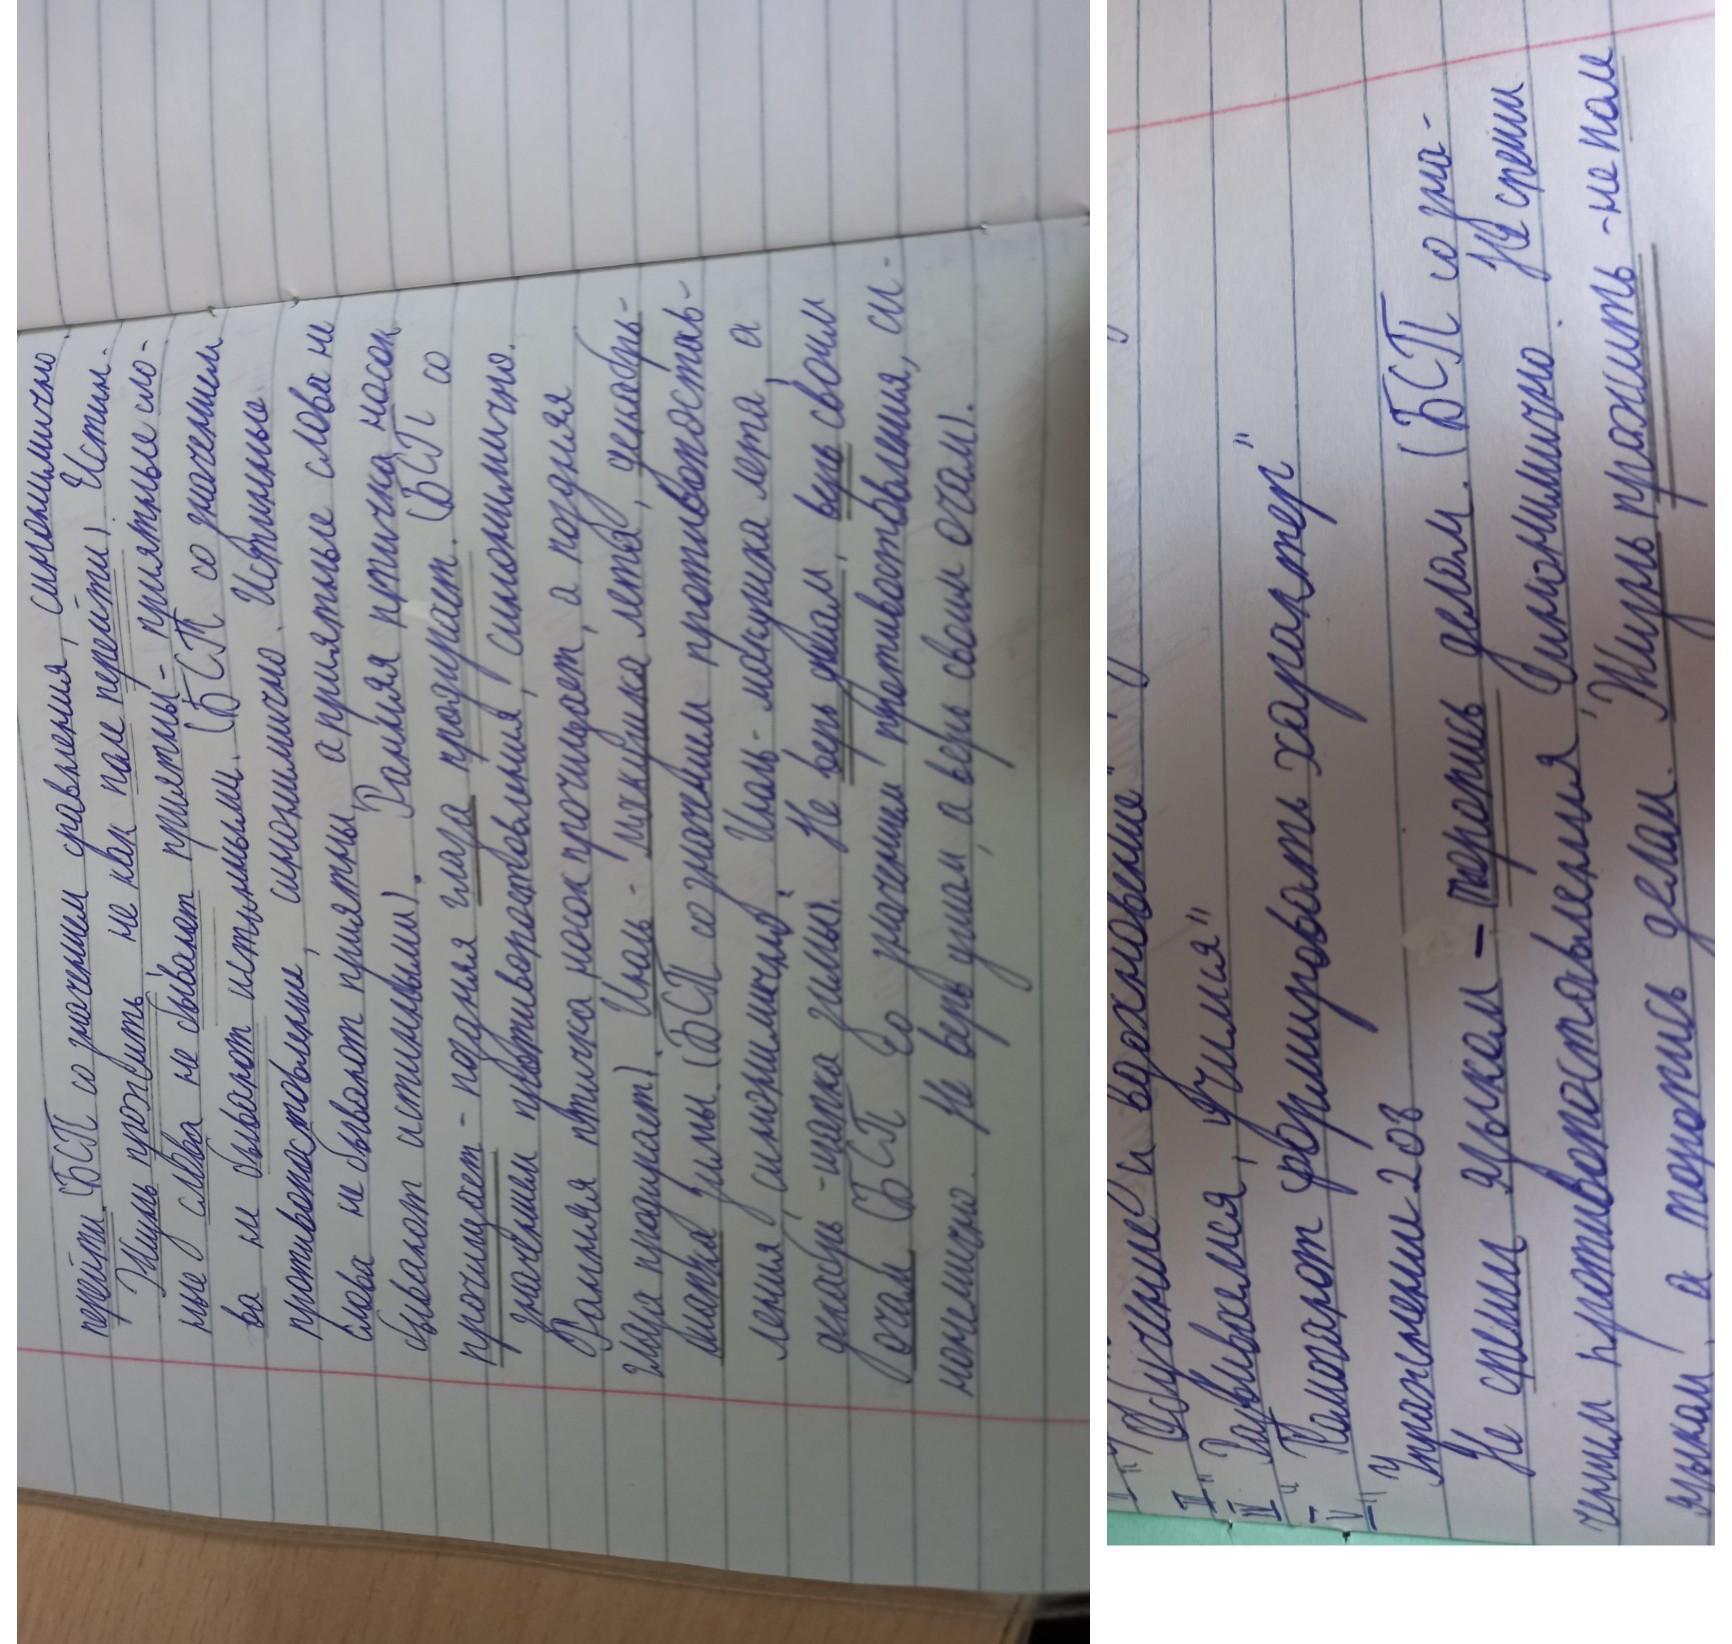 перейти. (БСП со значением сравнения, синонимично
Жизнь прожить не как поле перейти). Истин-
ные слова не бывают приятны - приятные сло-
ва не бывают истинными. (БСП со значением
противопоставление, синонимично. Истинные
слова не бывают приятны, а приятные слова не
бывают истинными). Ранняя птичка носок
прочищает - поздняя глаза продирает. (БСП со
значением противопоставления, синонимично.
Ранняя птичка носок прочищает, а поздняя
глаза продирает). Июль - макушка лета, декабрь-
шапка зимы. (БСП со значением противопостав-
ления, синонимично. Июль - макушка лета, а
декабрь - шапка зимы). Не верь ушам, верь своим
очам (БСП Со значением противоставления, си-
нонимично. Не верь ушам, а верь своим очам).
"Обучение и вдохновение"
II "Развиваемся, учимся"
IV "Помогают формировать характер"
V "
Упражнение 208
Не спеши языком - торопись делом. (БСП со зна-
чением противопоставления. Синонимично. Не спеши
языком, а торопись делом. Жизнь прожить - не поле